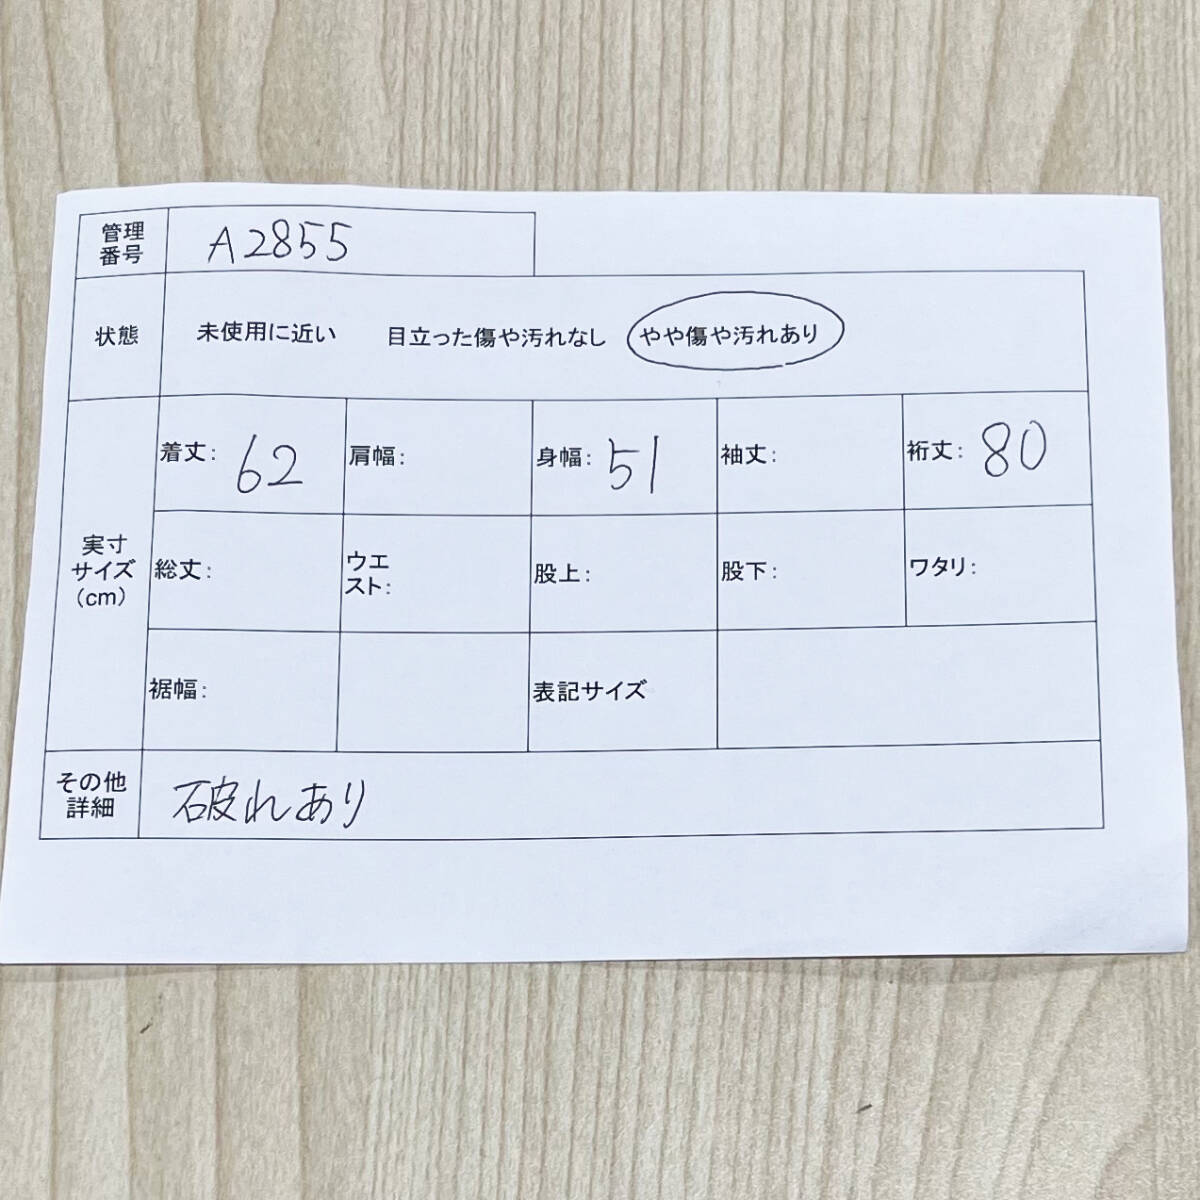 管理
番号
A2855
状態
未使用に近い 目立った傷や汚れなし やや傷や汚れあり
実寸
サイズ
(cm)
着丈: 62
肩幅:
身幅: 51
袖丈:
裄丈: 80
総丈:
ウエ
スト:
股上:
股下:
ワタリ:
裾幅:
表記サイズ
その他
詳細
破れあり